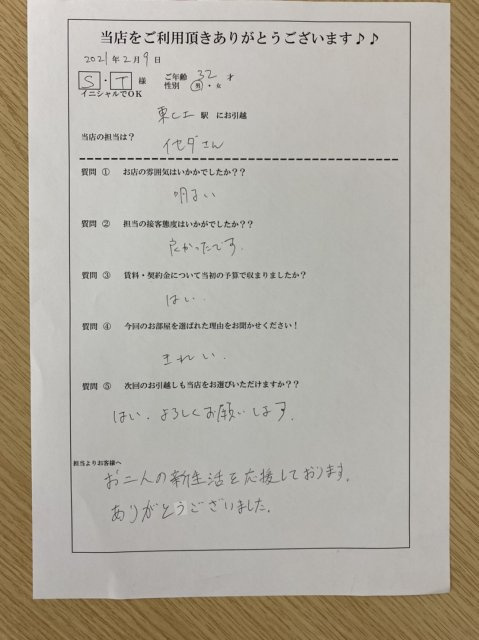 当店をご利用頂きありがとうございます♪♪
2021年2月9日
S・T 様 ご年齢 32 才
イニシャルでOK 性別 男・女
駅 にお引越
当店の担当は？ さん
質問 ① お店の雰囲気はいかがでしたか？？
明るい
質問 ② 担当の接客態度はいかがでしたか？？
良かったです。
質問 ③ 賃料・契約金について当初の予算で収まりましたか？
はい.
質問 ④ 今回のお部屋を選ばれた理由をお聞かせください！
きれい.
質問 ⑤ 次回のお引越しも当店をお選びいただけますか？？
はい. よろしくお願いします.
担当よりお客様へ
お二人の新生活を応援しております.
ありがとうございました.